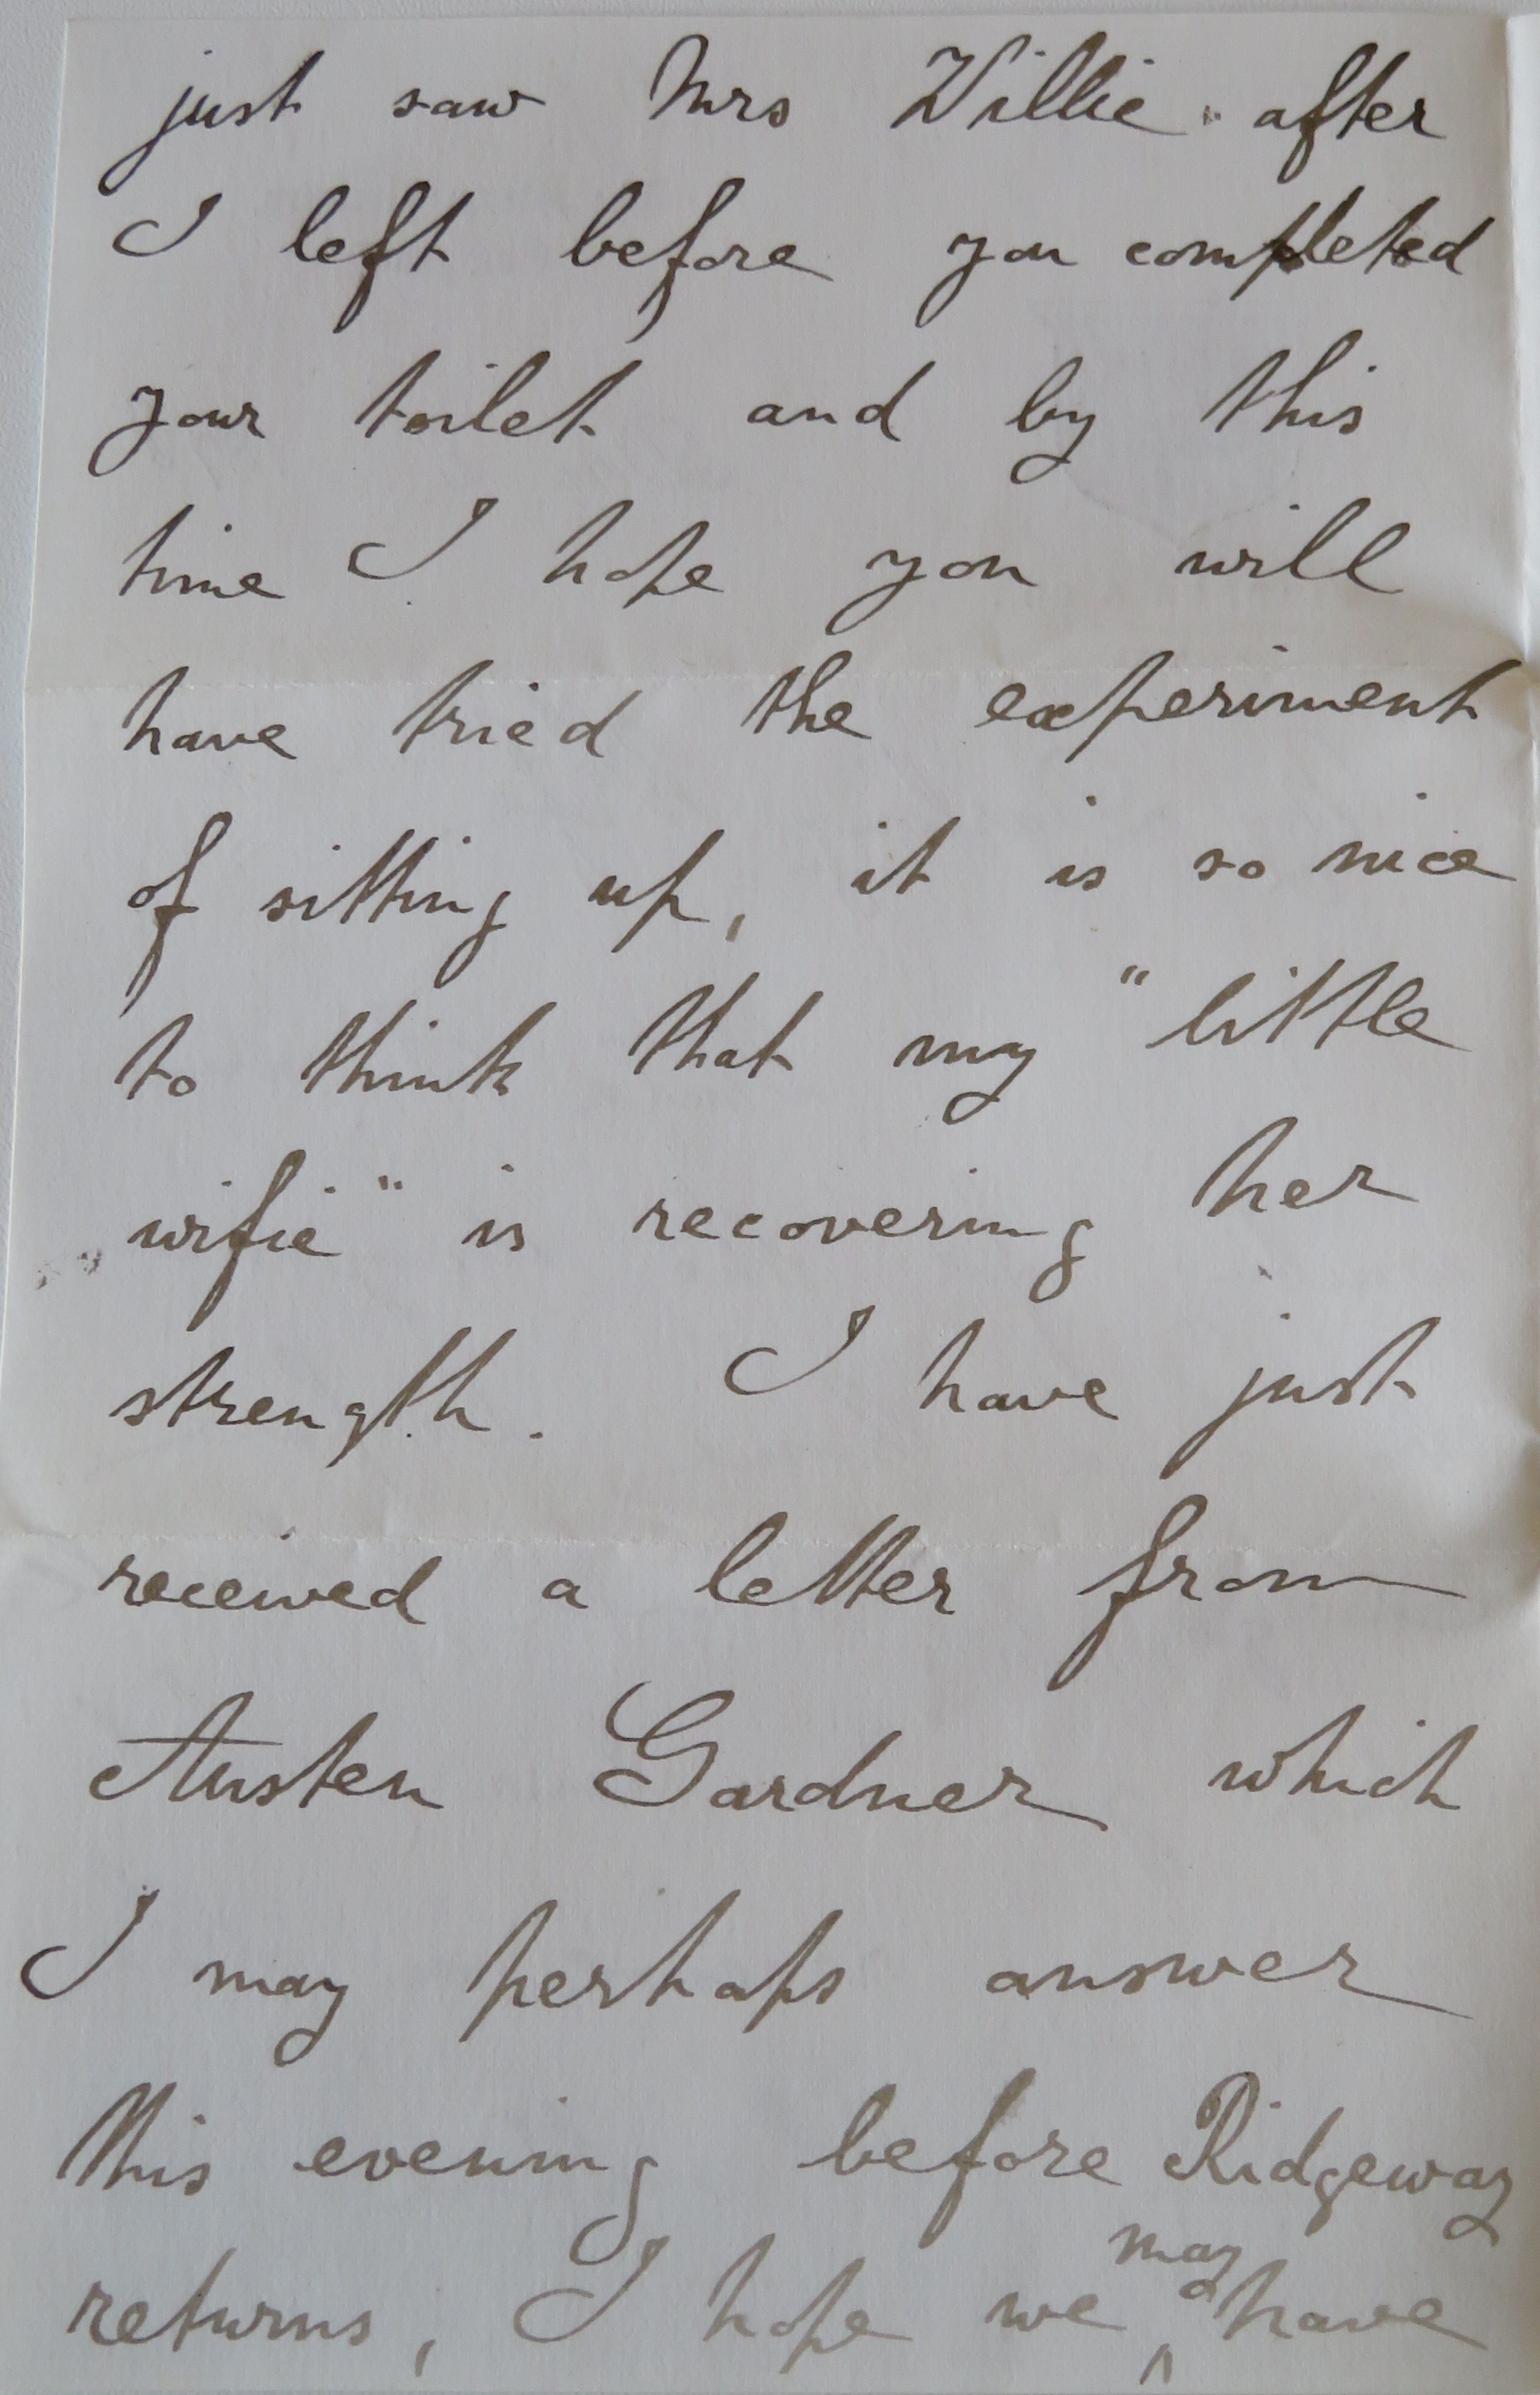 just saw Mrs Willie after
I left before you completed
your toilet and by this
time I hope you will
have tried the experiment
of sitting up, it is so nice
to think that my "little
wifie" is recovering her
strength. I have just
received a letter from
Austen Gardner which
I may perhaps answer
this evening before Ridgeway
may
returns, I hope we ^ have